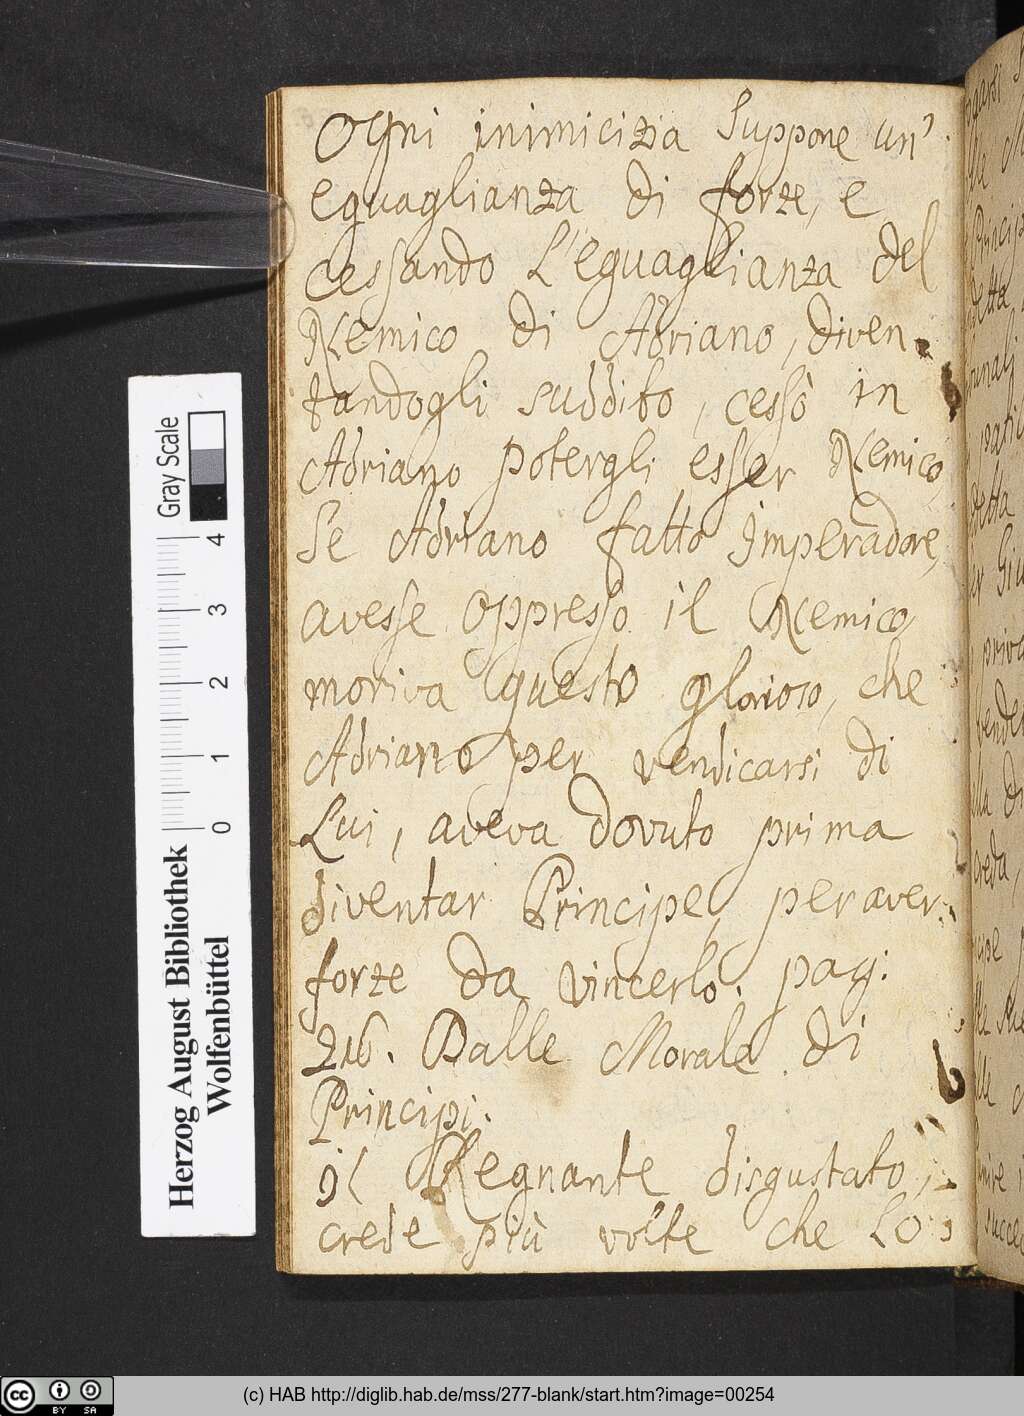 Ogni inimicizia Suppone un'
eguaglianza di forze, e
cessando L'eguaglianza del
Nemico di Adriano, diven-
tandogli suddito, cessò in
Adriano potergli esser Nemico,
Se Adriano fatto Imperadore,
avesse oppresso il Nemico,
moriva questo glorioso, che
Adriano per vendicarsi di
Lui, aveva dovuto prima
diventar Principe, per aver
forze da vincerlo. pag:
216. Dalle Morale di
Principi.
il Regnante disgustato,
crede più volte che Lo
Gray Scale
4
3
2
1
0
Herzog August Bibliothek
Wolfenbüttel
cc BY SA
(c) HAB http://diglib.hab.de/mss/277-blank/start.htm?image=00254